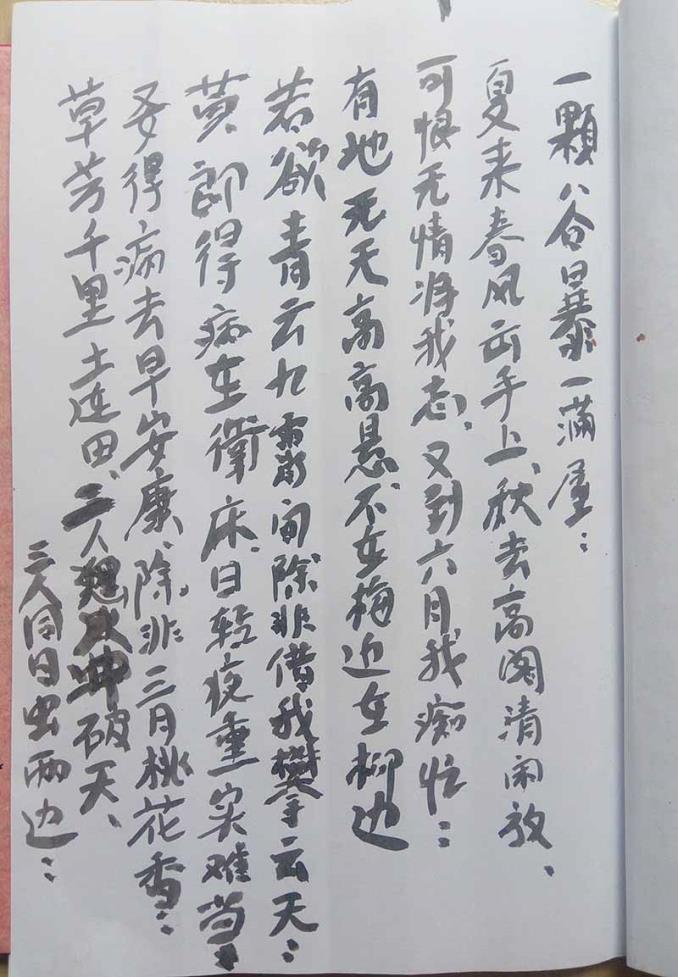 一顆八谷暴一滿屋：
夏来春风云手上、秋去高阁清闲放、
可恨无情海我志、又到六月我痴忙：
有地无天高高悬、不在梅边在柳边
若欲青云九霄间除非借我攀云天：
黄郎得病在衛床、日轻夜重实难当：
要得病去早安康、除非三月桃花香：
草芳千里土连田、二人 破天、
三人同日虫两边：